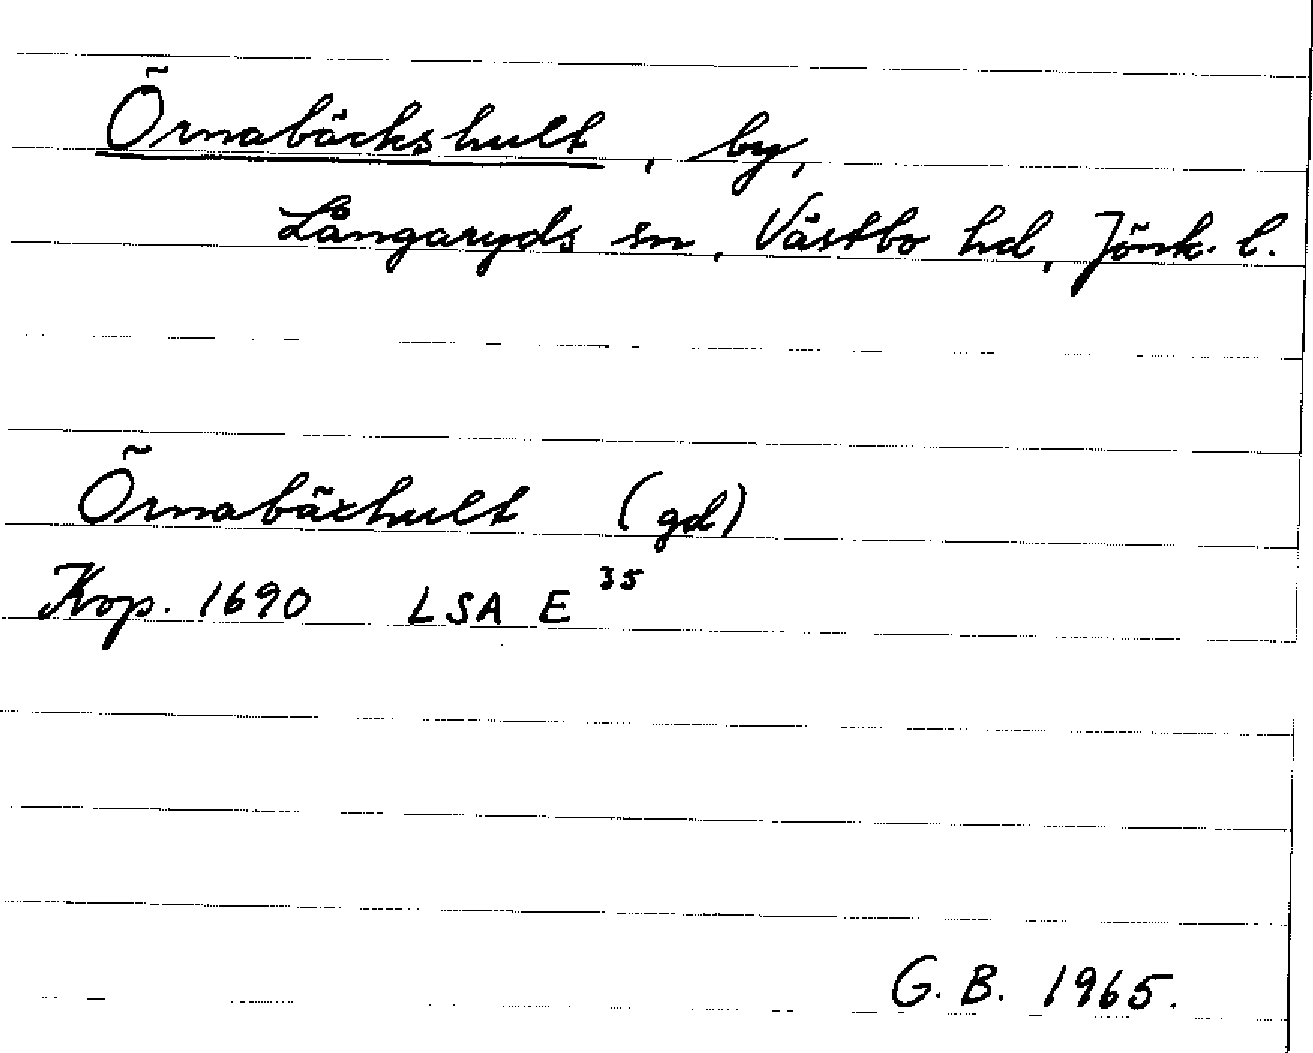 Örnabäckshult, by,
Långaryds sn, Västbo hd, Jönk. l.
Örnabäxhult (gd)
Kop. 1690 LSA E 35
G. B. 1965.